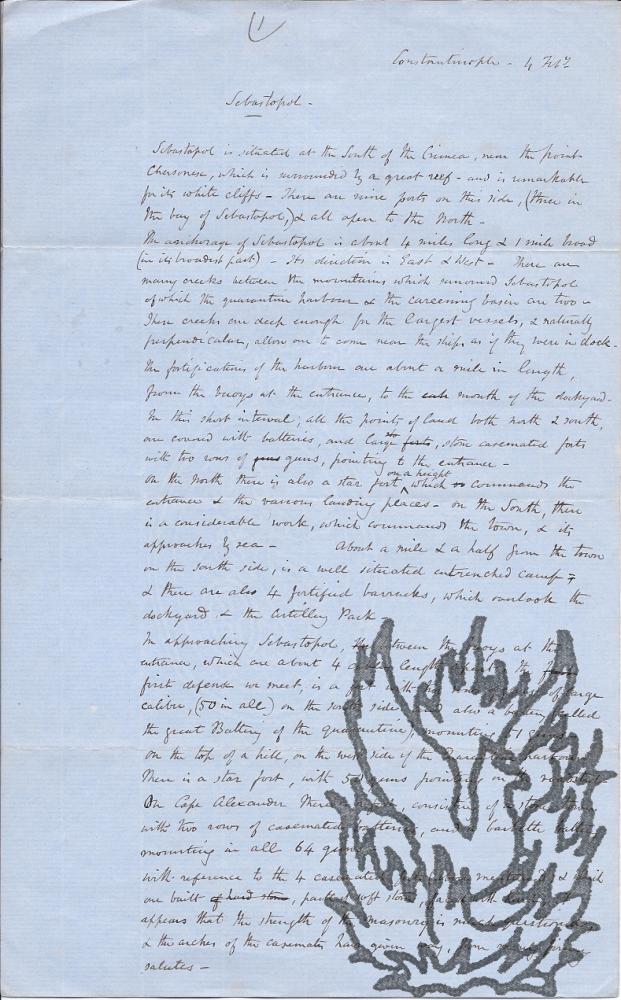 Constantinople - 4 Feby
Sebastopol -
Sebastopol is situated at the South of the Crimea, near the point
Chersonese, which is surrounded by a great reef - and is remarkable
for its white cliffs - There are nine ports on this side, (three in
the bay of Sebastopol,) & all open to the North -
The anchorage of Sebastopol is about 4 miles long & 1 mile broad
(in its broadest part) - Its direction is East & West - There are
many creeks between the mountains which surround Sebastopol
of which the quarantine harbour & the careening basin are two -
These creeks are deep enough for the largest vessels, & naturally
perpendicular, allow one to come near the ships as if they were in dock -
The fortifications of the harbour are about a mile in length,
from the buoys at the entrance, to the mouth of the dockyard -
In this short interval, all the points of land both north & south,
are covered with batteries, and large forts, stone casemated forts
with two rows of guns guns, pointing to the entrance -
On the North there is also a star fort on a height which commands the
entrance & the various landing places - on the South, there
is a considerable work, which commands the town, & its
approaches by sea - About a mile & a half from the town
on the south side, is a well situated entrenched camp -
& there are also 4 fortified barracks, which overlook the
dockyard & the Artillery Park -
In approaching Sebastopol, between the buoys at the
entrance, which are about 4 length the
first defence we meet, is a with the of large
calibre, (50 in all) on the south side also a battery called
the great Battery of the quarantine, mounting 51 guns
on the top of a hill, on the west side of the Quarantine harbour
There is a star fort, with 50 guns pointing on the
On Cape Alexander There consisting of a
with two rows of casemated batteries, and a barbette battery
mounting in all 64 guns
with reference to the 4 casemated mentioned, & said
are built of hard stone, soft stone, with
appears that the strength of the masonry is much questioned
& the arches of the casemates have given way, from firing
salutes -